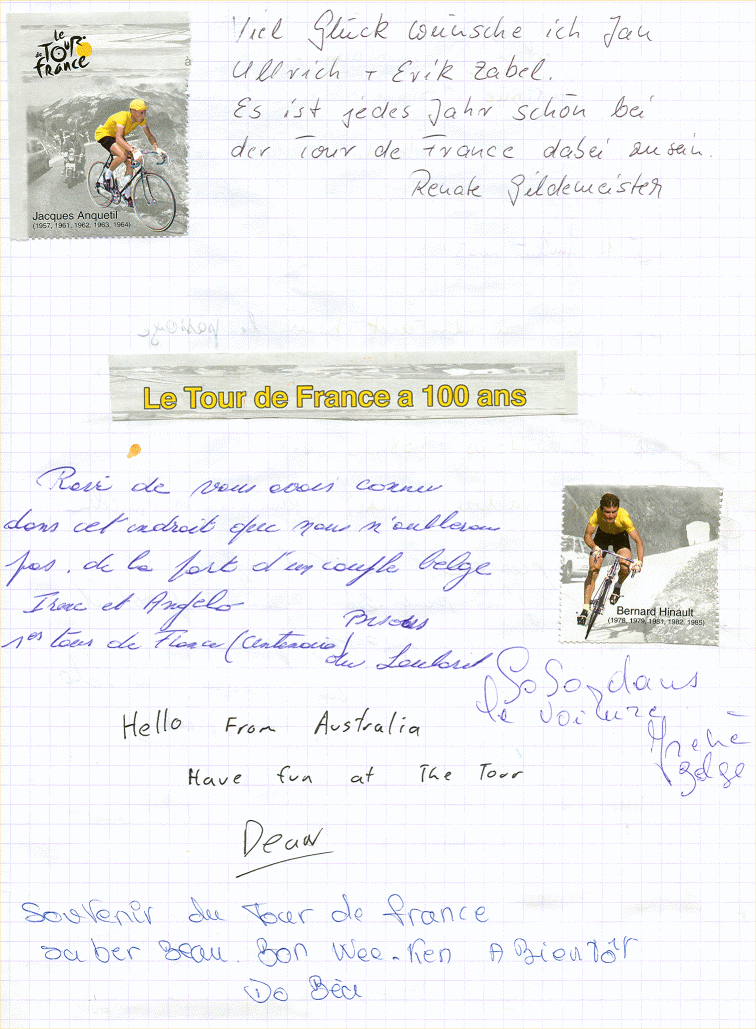 le
Tour
de france
Jacques Anquetil
(1957, 1961, 1962, 1963, 1964)
Viel Glück wünsche ich Jan
Ullrich + Erik Zabel.
Es ist jedes Jahr schön bei
der Tour de France dabei zu sein.
Renate Gildemeister
Le Tour de France a 100 ans
Ravi de vous avoir connu
dans cet endroit que nous n'oublerons
pas. de la part d'un couple belge
Irene et Angelo
1er tour de France (Centenaire)
Bisous
du
Bernard Hinault
(1978, 1979, 1981, 1982, 1985)
dans
la voiture
Hello From Australia
Have fun at The Tour
Dean
Souvenir du Tour de france
Bon Wee-Ken A Bientôt